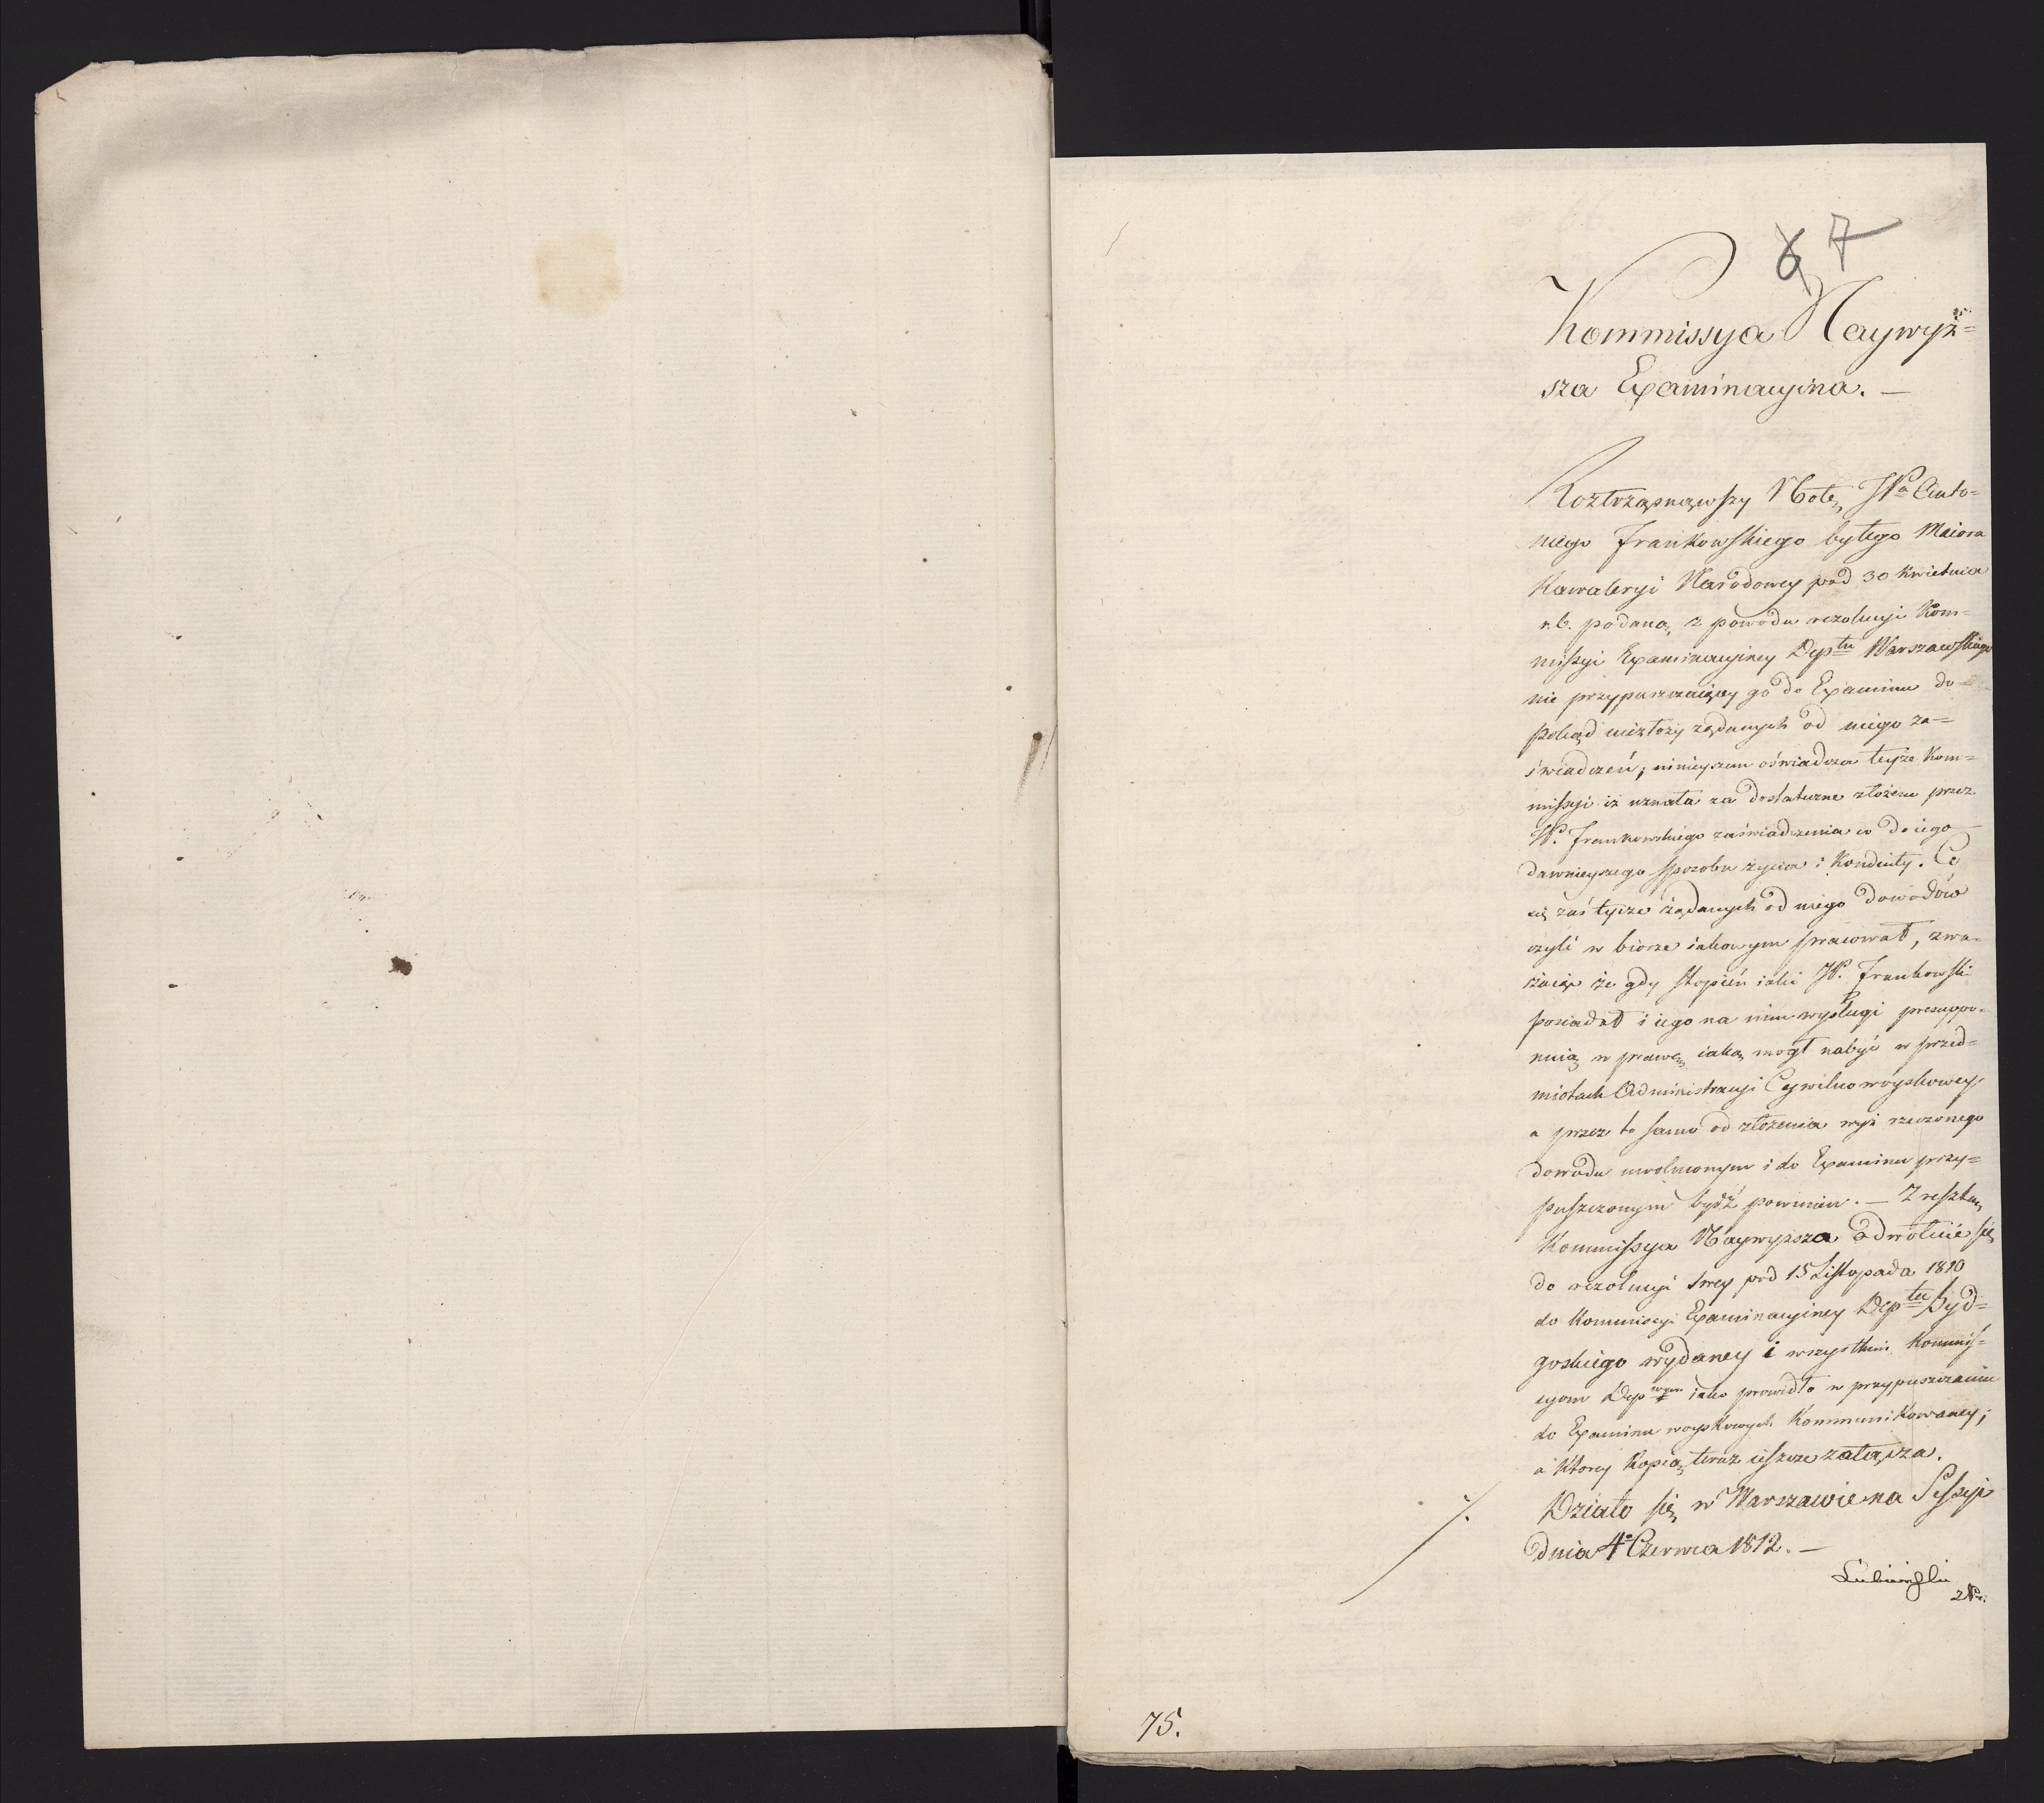 6 7
Kommissya Naywyż=
sza Examinacyina. —
Roztrząsnąwszy Notę JPa Anto=
niego Frankowskiego byłego Maiora
Kawaleryi Narodowey pod 30 Kwietnia
r.b. podaną, z powodu rezolucyi Kom=
missyi Examinacyiney Deptu Warszawskiego
nie przypuszczaiącey go do Examinu do=
pokąd niezłoży żądanych od niego za=
świadczeń; ninieyszem oświadcza teyże Kom=
missyi iż uznała za dostateczne złożone przez
JP. Frankowskiego zaświadczenia co do iego
dawnieyszego sposobu życia i Konduity. Co
się zaś tycze żądanych od niego dowodów
czyli w biorze iakowym pracował, zwa=
żaiąc że gdy stopień iaki JP. Frankowski
posiadał i iego na nim wysługi presuppo=
nuią w prawę iaką mógł nabyć w przed=
miotach Administracyi Cywilno woyskowey,
a przez to samo od złożenia wyż rzeczonego
dowodu uwolnionym i do Examinu przy=
puszczonym bydź powinien. — Z resztą
Kommissya Naywyższa odwołuie się
do rezolucyi swey pod 15 Listopada 1810
do Kommissyi Examinacyiney Deptu Byd=
goskiego wydaney i wszystkim Kommis=
syom Depwym iako prawidło w przypuszczaniu
do Examinu woyskowych Kommunikowaney;
a którey Kopią teraz ieszcze załącza.
Działo się w Warszawie na Sessyi
dnia 4o Czerwca 1812. —
Lubieński
75.